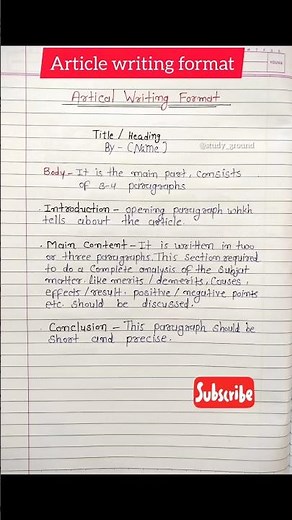 Article writing format
Artical Writing Format
Title / Heading
By - (Name)
@study_ground
Body - It is the main part, consists
of 3-4 paragraphs
Introduction - opening paragraph which
tells about the article.
Main Content - It is written in two
or three paragraphs. This section required
to do a complete analysis of the subjat
matter like merits / demerits, causes,
effects / result, positive / negative points
etc. should be discussed.
Conclusion - This paragraph should be
short and precise.
Subscribe